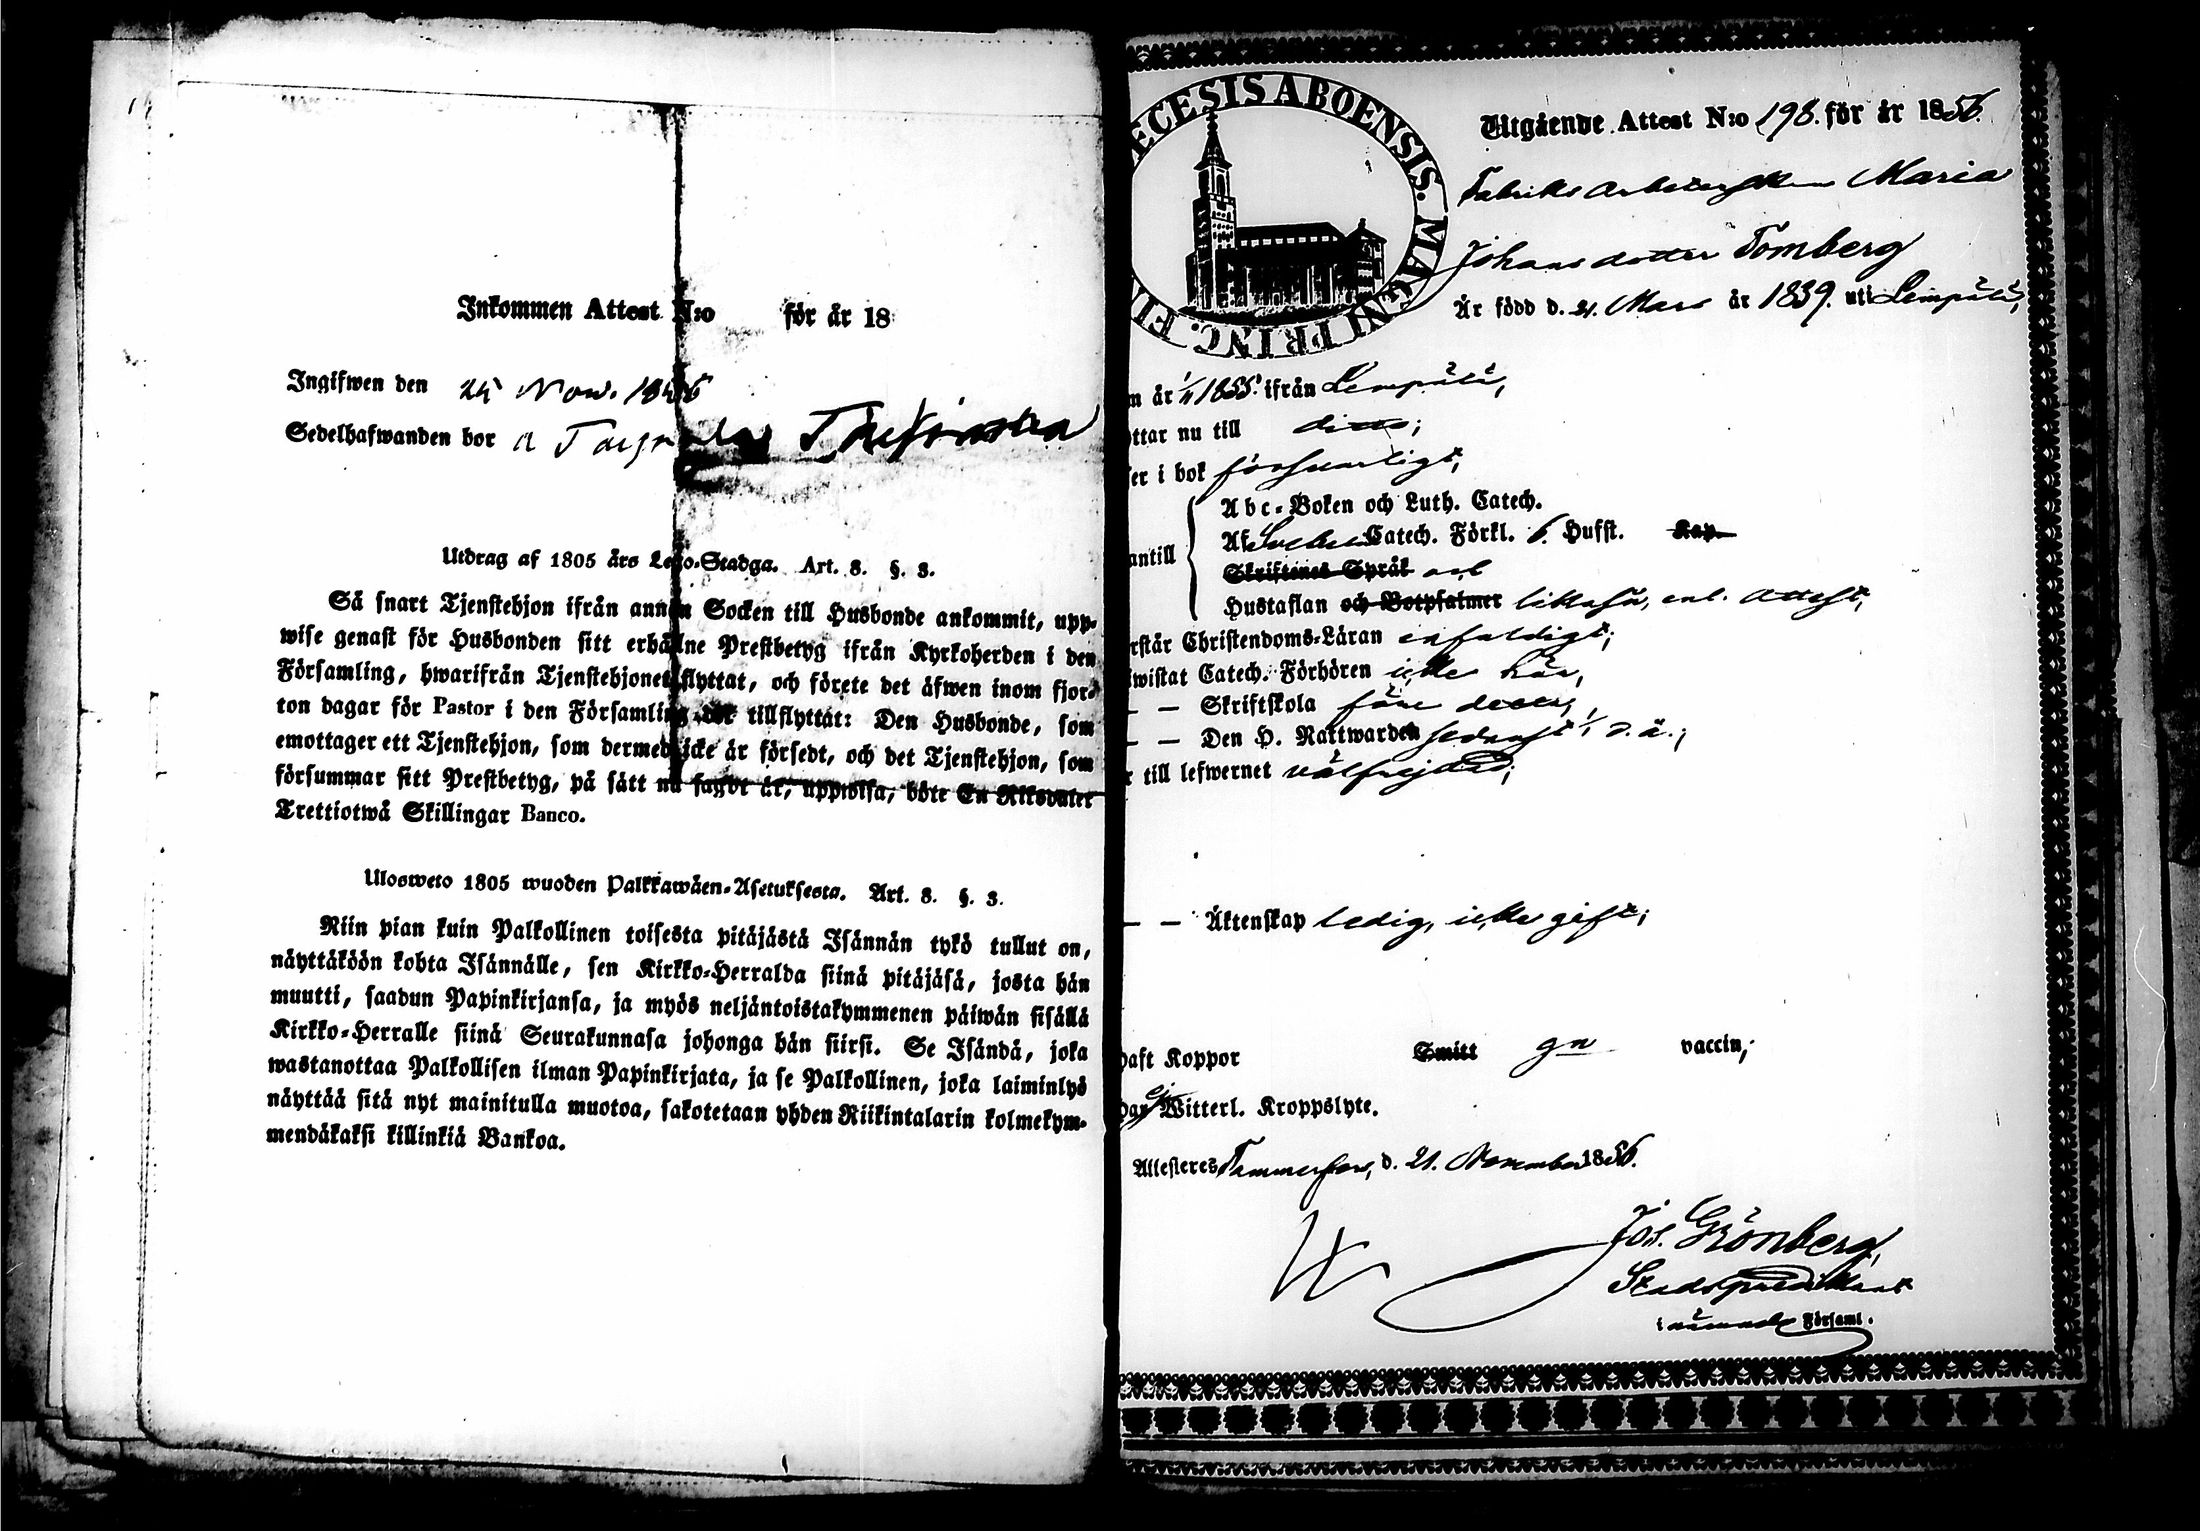 Inkommen Attest N:o för år 18
Ingifwen den 25 Nov. 1856
Sedelhafwanden bor à
Utdrag af 1805 års Lego-Stadga. Art. 8. §. 3.
Så snart Tjenstehjon ifrån annan Socken till Husbonde ankommit, upp-
wise genast för Husbonden sitt erhållne Prestbetyg ifrån Kyrkoherden i den
Församling, hwarifrån Tjenstehjonet flyttat, och förete det äfwen inom fjor-
ton dagar för Pastor i den Församling det tillflyttat: Den Husbonde, som
emottager ett Tjenstehjon, som dermed icke är försedt, och det Tjenstehjon, som
försummar sitt Prestbetyg, på sätt nu sagdt är, uppwisa, böte En Riksdaler
Trettiotwå Skillingar Banco.
Ulosweto 1805 wuoden Palkkawäen-Asetuksesta. Art. 8. §. 3.
Niin pian kuin Palkollinen toisesta pitäjästä Isännän tykö tullut on,
näyttäköön kohta Isännälle, sen Kirkko-Herralda siinä pitäjäsä, josta hän
muutti, saadun Papinkirjansa, ja myös neljäntoistakymmenen päiwän sisällä
Kirkko-Herralle siinä Seurakunnasa johonga hän siirsi. Se Isändä, joka
wastanottaa Palkollisen ilman Papinkirjata, ja se Palkollinen, joka laiminlyö
näyttää sitä nyt mainitulla muotoa, sakotetaan yhden Riikintalarin kolmekym-
mendäkaksi killinkiä Bankoa.
ECESIS ABOENSIS. MAGNI PRINC. FI
Utgående Attest N:o 198. för år 1856.
Fabriks Arbeterskan Maria
Johansdotter Tomberg
Är född d. 21. Mars år 1839. uti Lempälä,
n år 1/11 1855 ifrån Lempälä,
ttar nu till dito;
er i bok försvarligt,
Abc-Boken och Luth. Catech.
antill Af Svebelii Catech. Förkl. 6. Hufst. Kap.
Skriftenes Språk och
Hustaflan och Botpsalmer likaså, enl. attest,
rstår Christendoms-Läran enfaldigt;
iwistat Catech. Förhören icke här,
— — Skriftskola före detta,
— — Den H. Nattwarden sednast
r till lefwernet välfrejdad;
— — Äktenskap ledig, icke gift;
haft Koppor Smitt gn vaccin,
har ej Witterl. Kroppslyte.
Attesteres Tammerfors, d. 21. November 1856.
Jos. Grönberg,
Stadspredikant
i nämnde Församl.